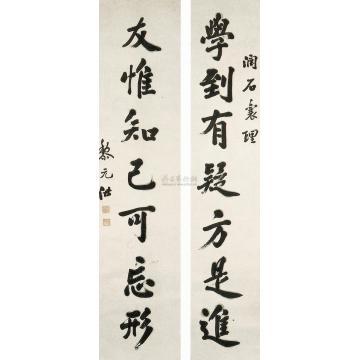 潤石襄理
學到有疑方是進
友惟知己可忘形
黎元洪